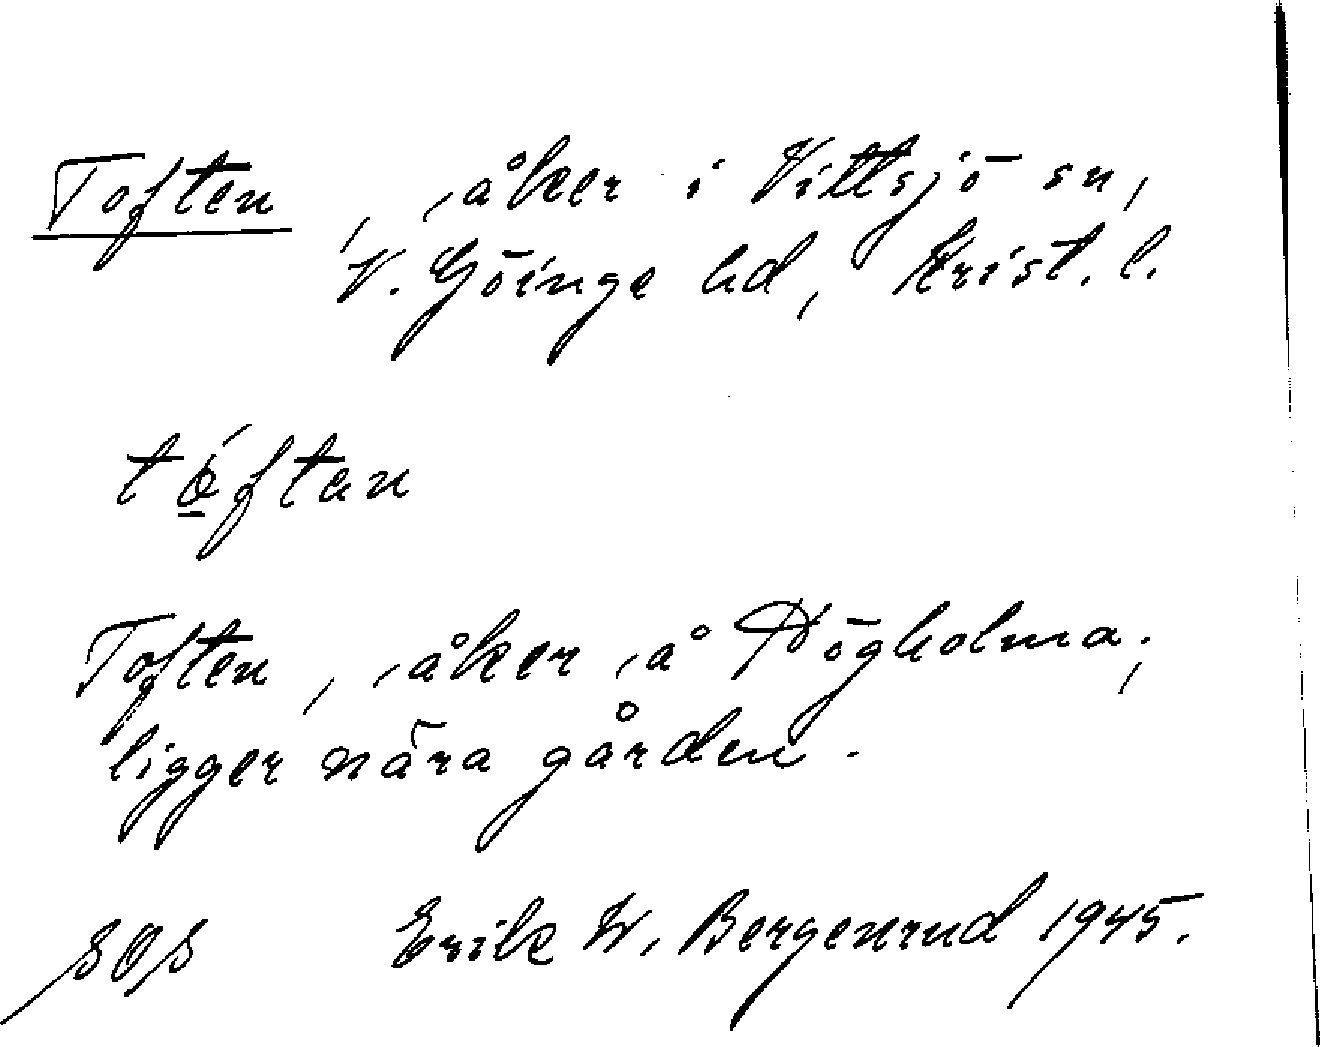 Toften, åker i Vittsjö sn,
V. Göinge hd, Krist. l.
tó̱ftan
Toften, åker å Högholma;
ligger nära gården.
SOS Erik W. Bergenrud 1945.